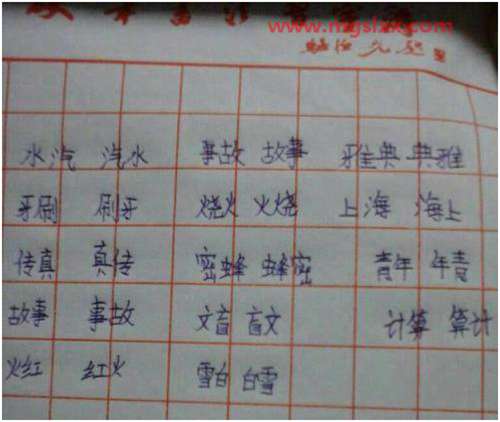 www.nzgsfzx.com
水汽 汽水 事故 故事 雅典 典雅
牙刷 刷牙 烧火 火烧 上海 海上
传真 真传 密蜂 蜂密 青年 年青
故事 事故 文盲 盲文 计算 算计
火红 红火 雪白 白雪